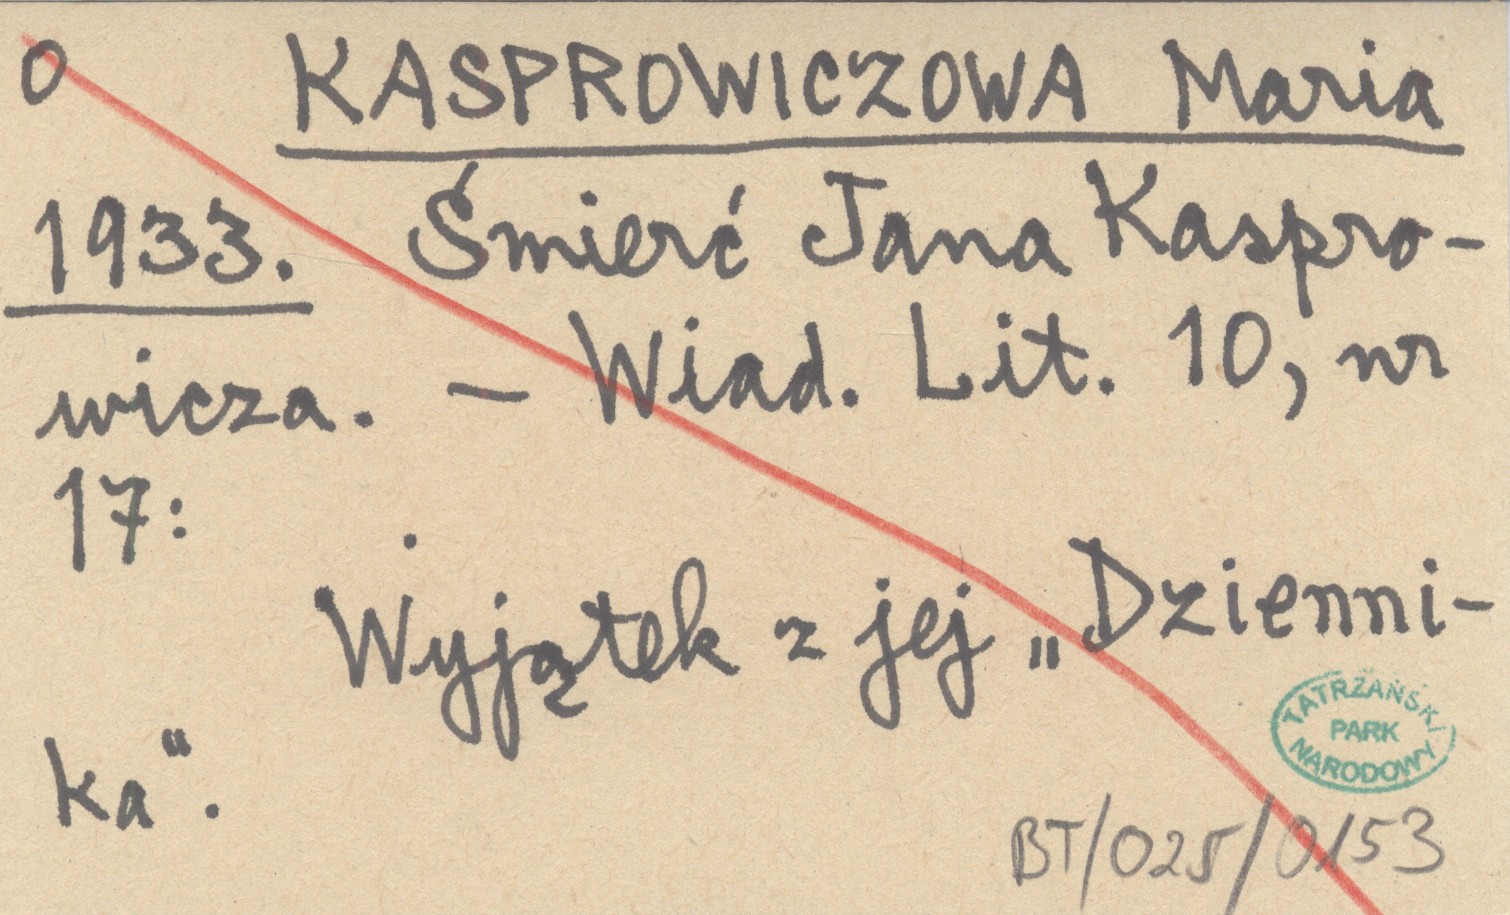 O KASPROWICZOWA Maria
1933. Śmierć Jana Kaspro-
wicza. – Wiad. Lit. 10, nr
17:
Wyjątek z jej „Dzienni-
ka".
TATRZAŃSKI
PARK
NARODOWY
BT/025/0153